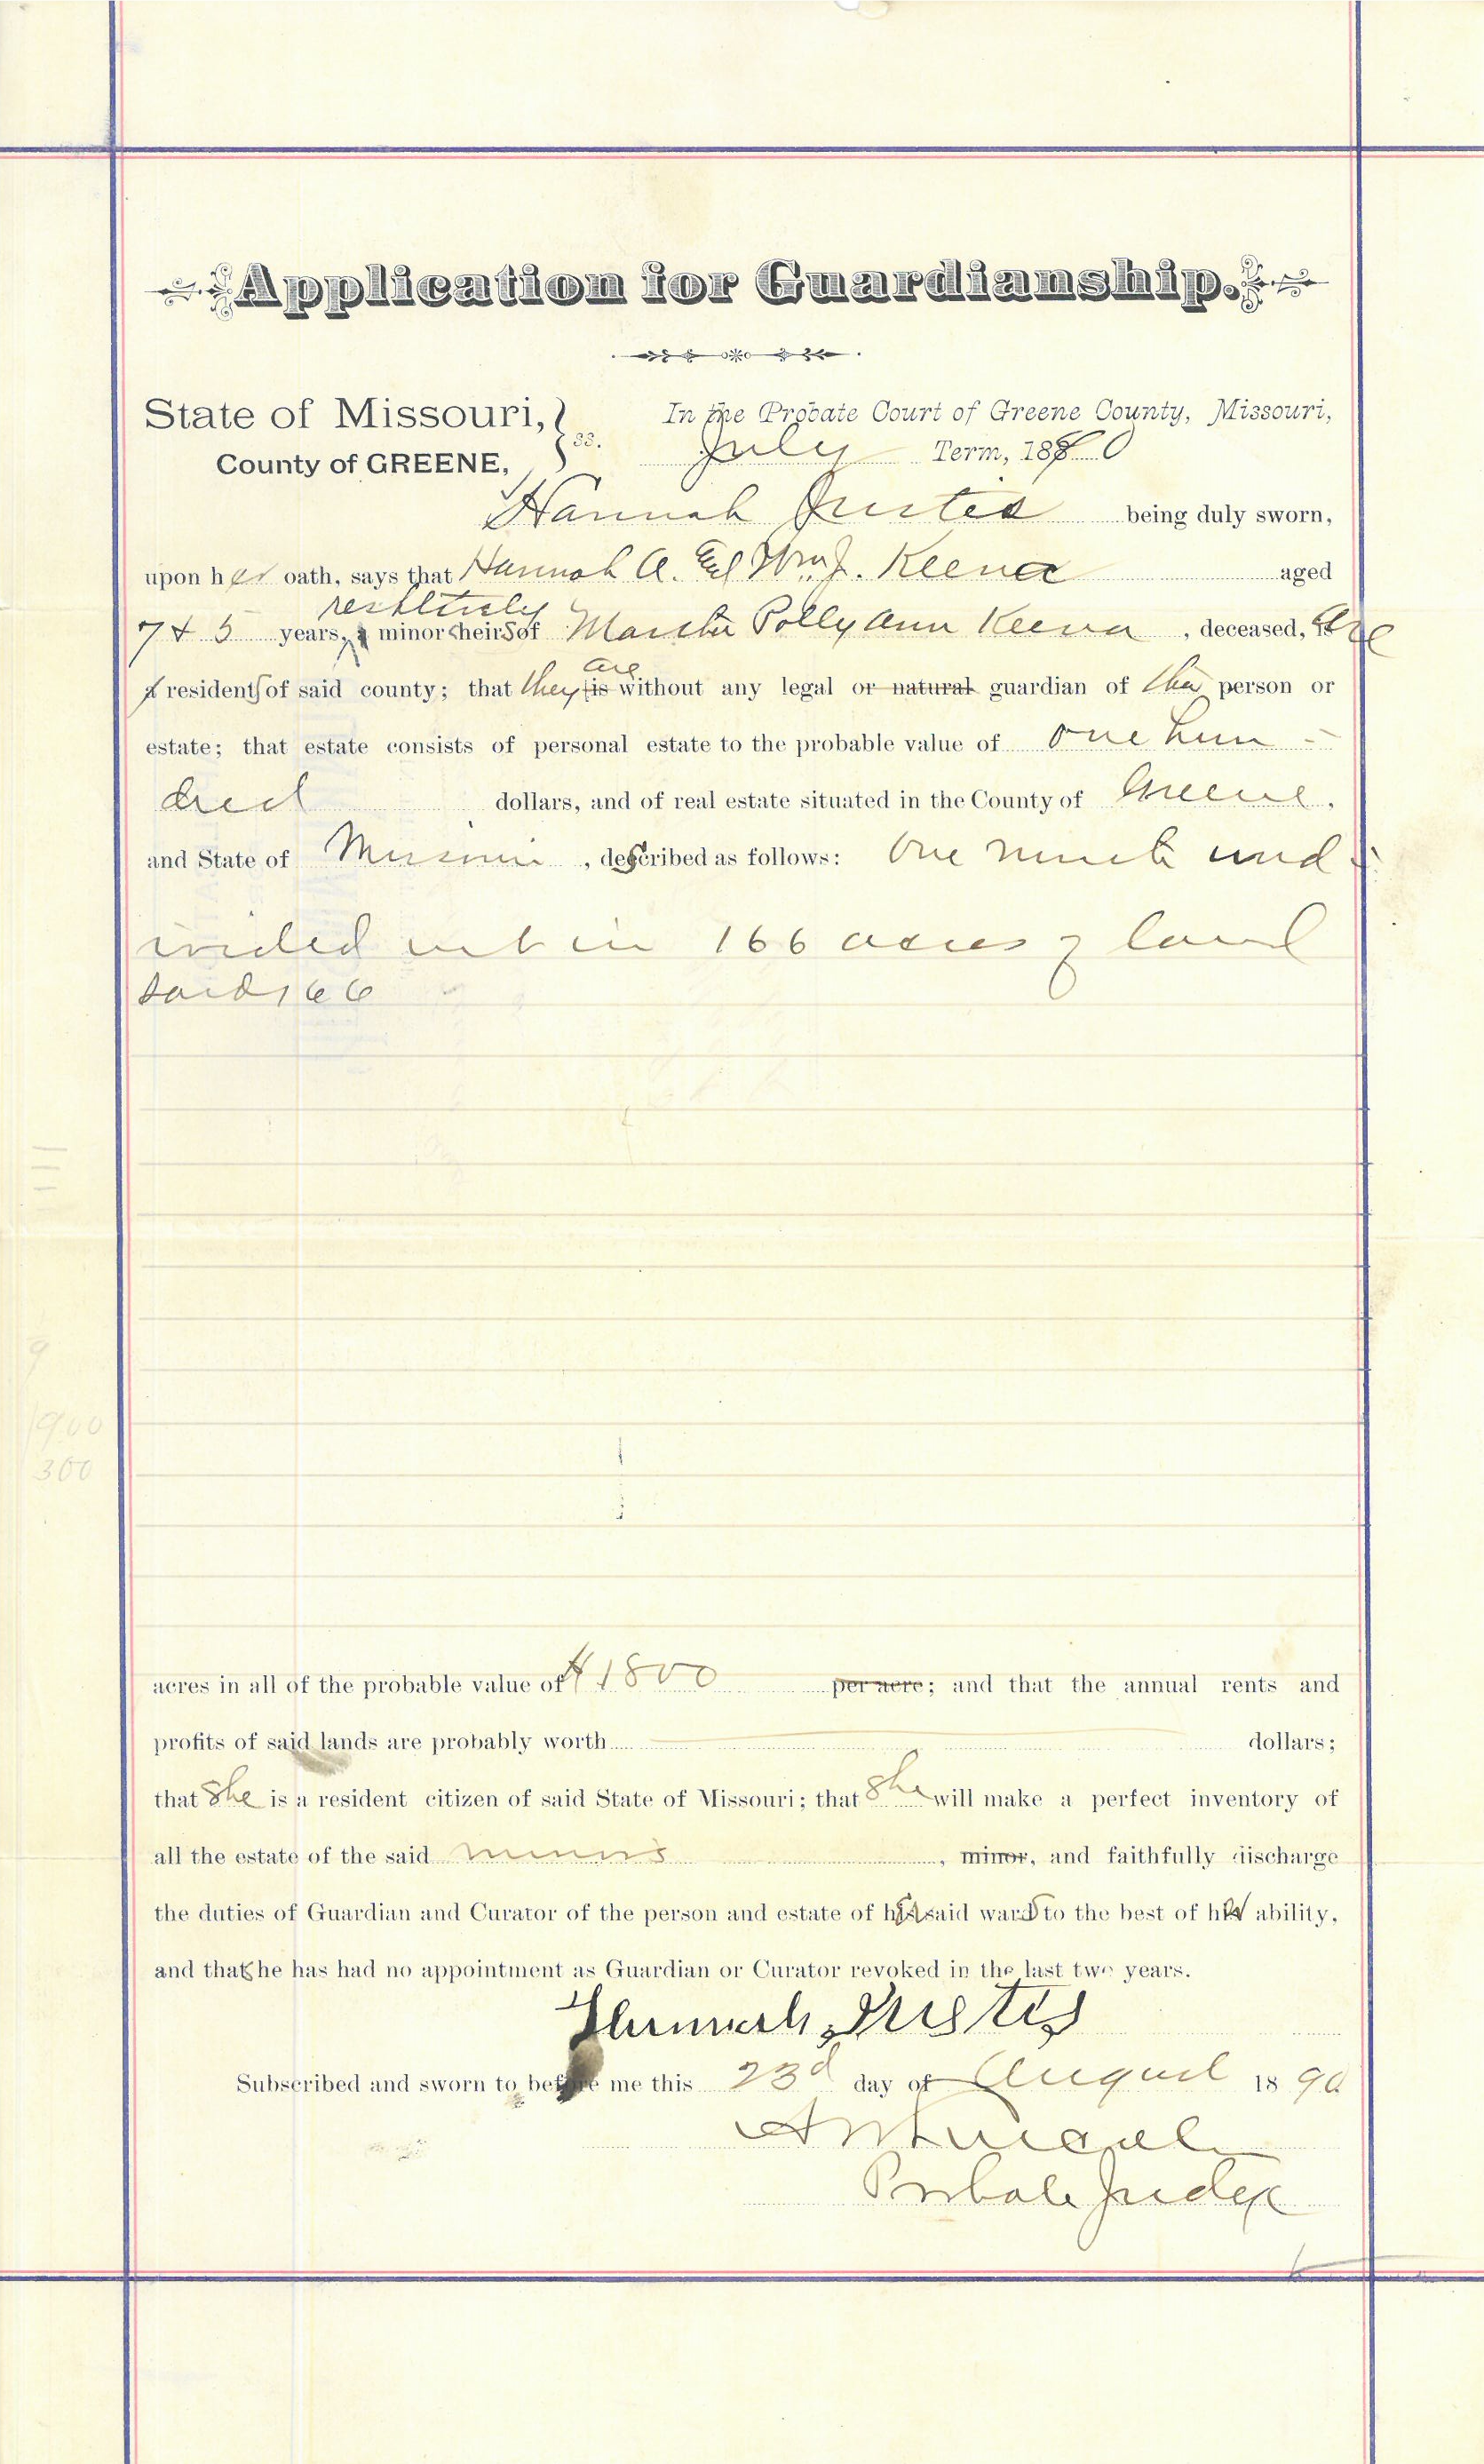 Application for Guardianship.
State of Missouri, } ss. In the Probate Court of Greene County, Missouri,
County of GREENE, July Term, 1890
Hannah Justis being duly sworn,
upon her oath, says that Hannah A. & Wm J. Keena aged
resptively
7 & 5 years, a minor heirs of Martha Polly Ann Keena, deceased, is are
a residents of said county; that they is are without any legal or natural guardian of their person or
estate; that estate consists of personal estate to the probable value of one hun-
dred dollars, and of real estate situated in the County of Greene,
and State of Missouri, described as follows: One ninth und-
ivided int in 166 acres of land
said 166
9
1900
300
acres in all of the probable value of $1800 per acre; and that the annual rents and
profits of said lands are probably worth dollars;
that She is a resident citizen of said State of Missouri; that She will make a perfect inventory of
all the estate of the said minors, minor, and faithfully discharge
the duties of Guardian and Curator of the person and estate of her said wards to the best of her ability,
and that she has had no appointment as Guardian or Curator revoked in the last two years.
Hannah Justis
Subscribed and sworn to before me this 23d day of August 1890
Probate Judge